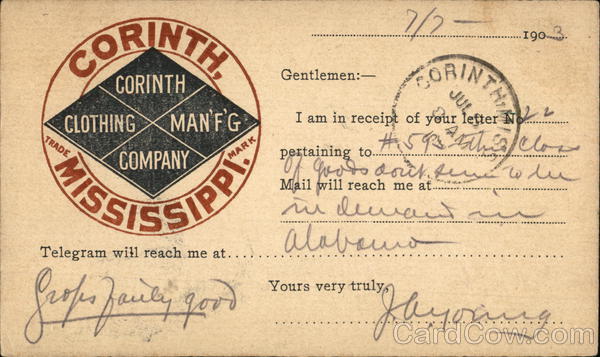 CORINTH,
CORINTH
CLOTHING MAN'F'G
COMPANY
TRADE MARK
MISSISSIPPI.
7/7 — 1903
Gentlemen:—
CORINTH, MISS
JUL
I am in receipt of your letter No 22
pertaining to #593 this class
of goods dont seem to be
Mail will reach me at
in demand in
Alabama
Telegram will reach me at
Crops fairly good
Yours very truly,
Young
CardCow.com